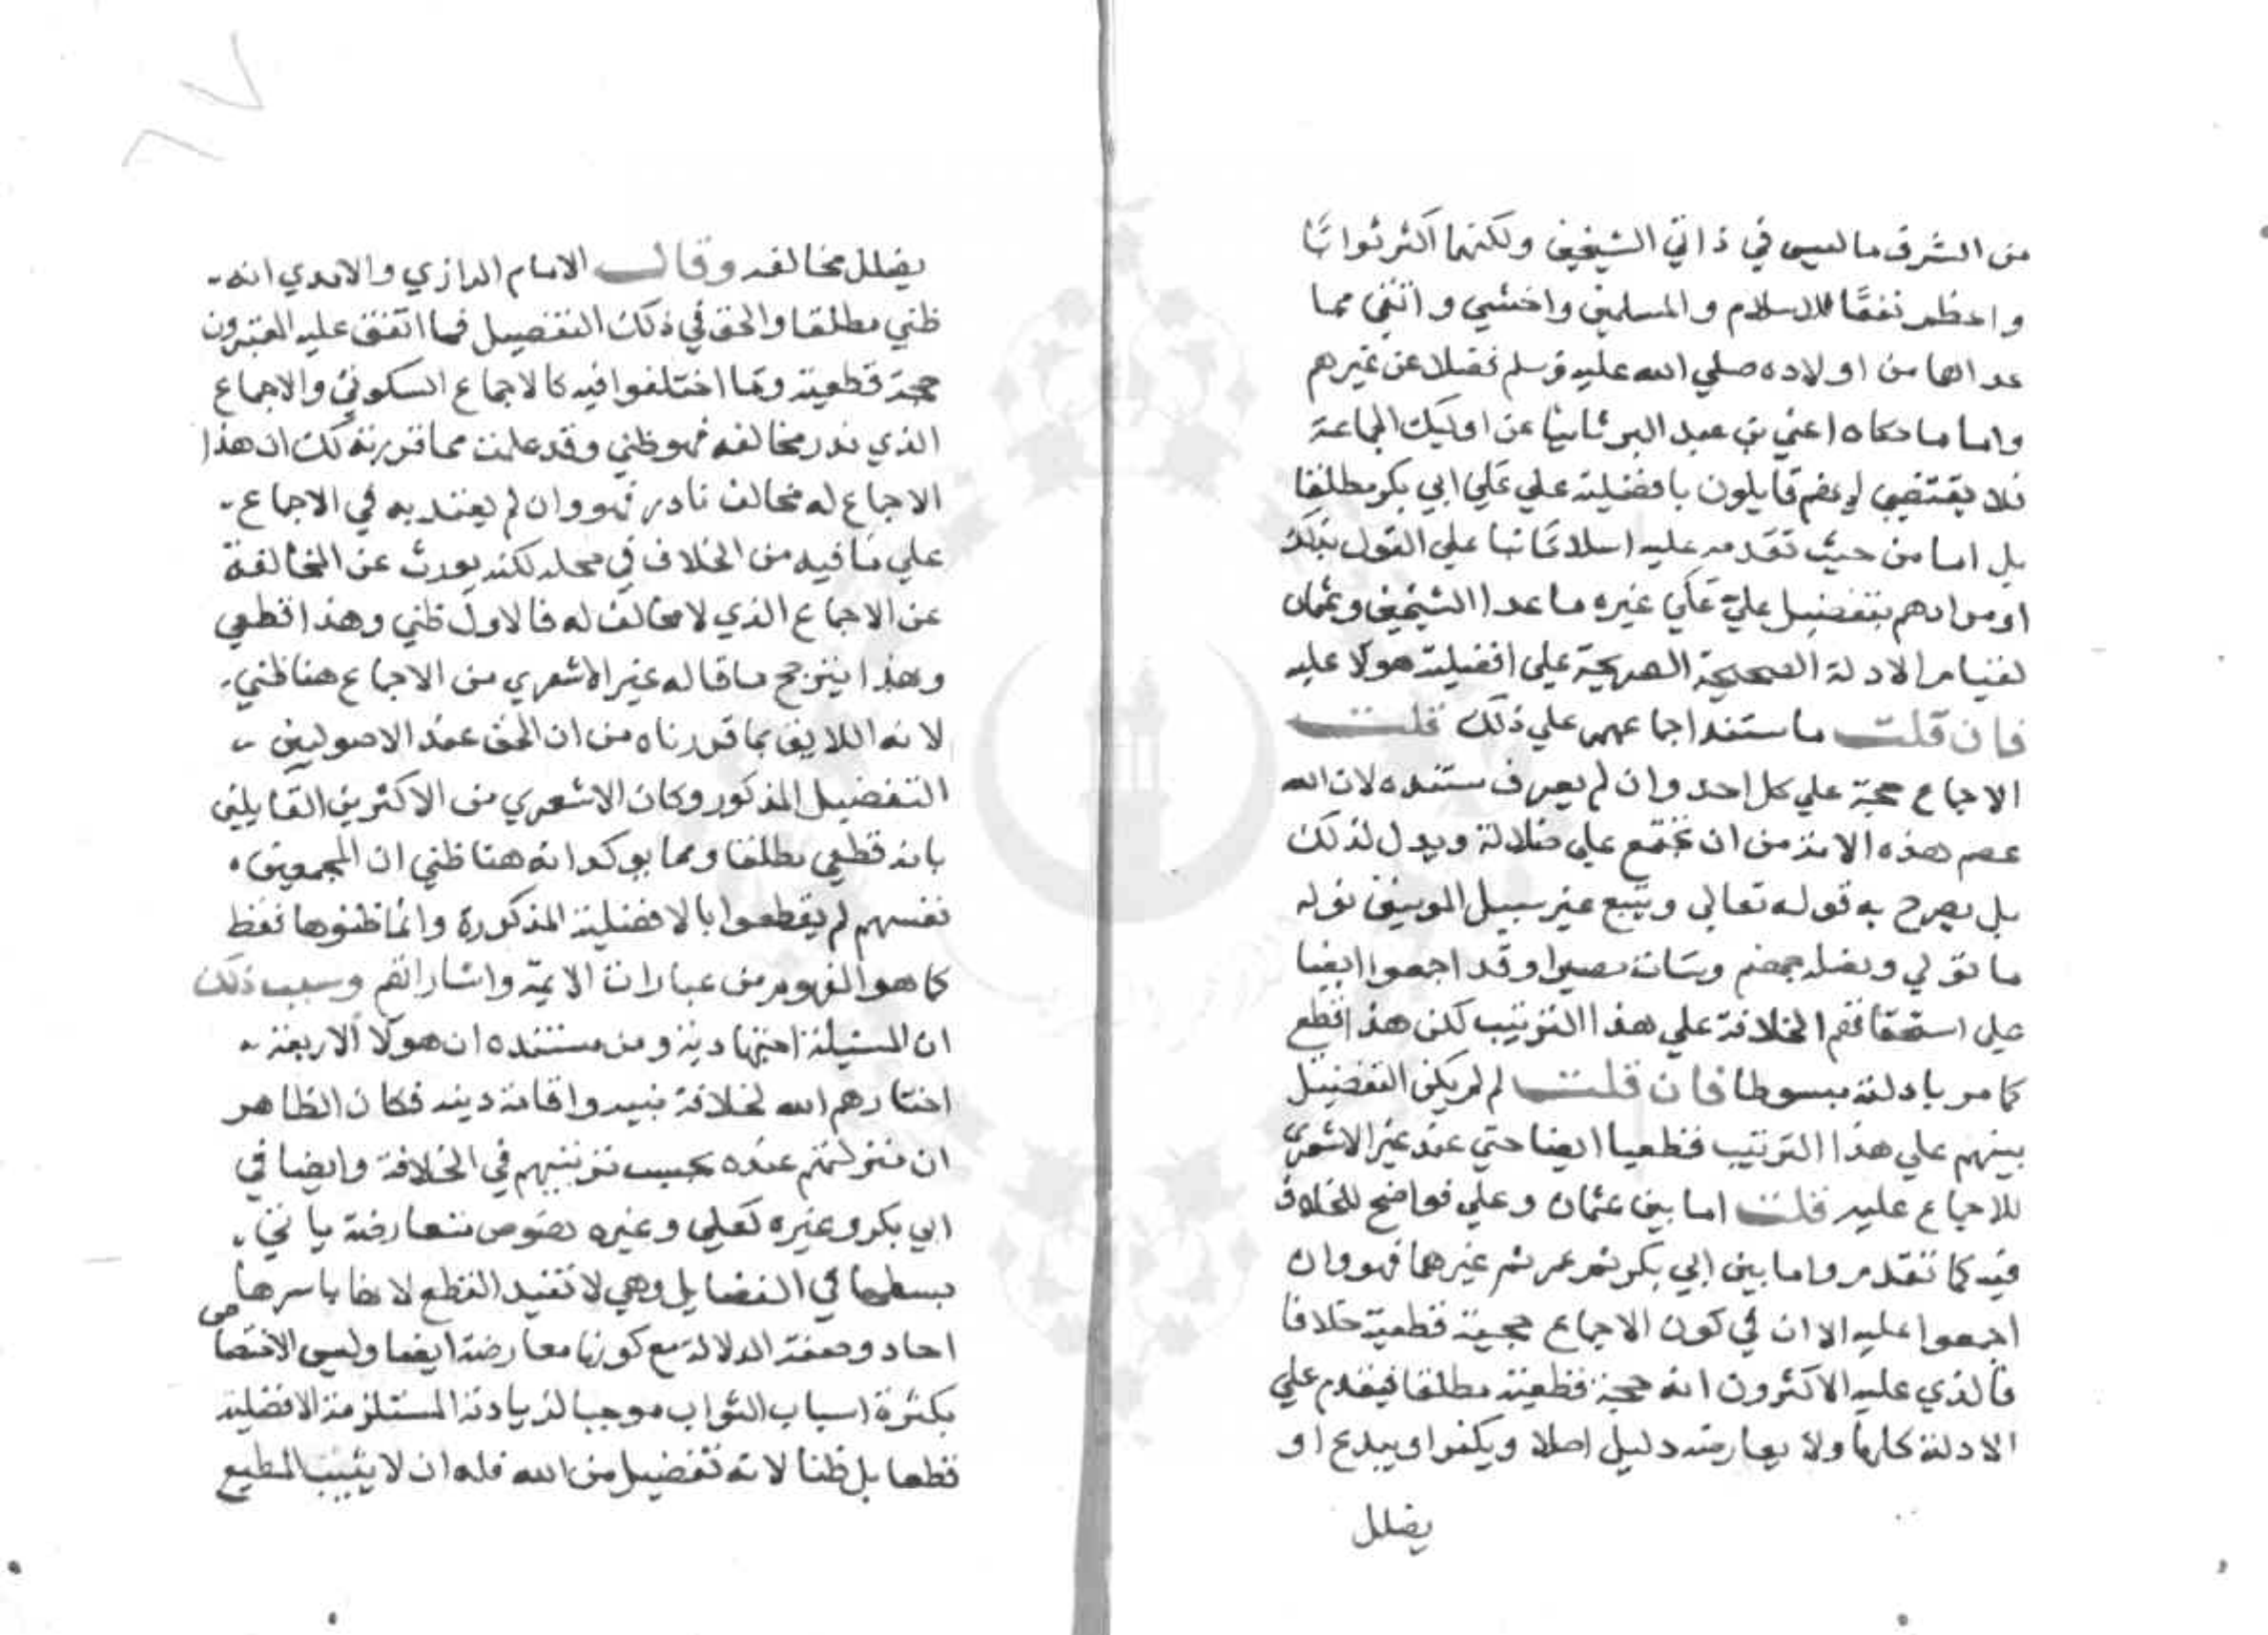 من الشرف ما ليس في ذاتي الشيخين ولكنهما اكثر ثوابا
واعظم نفعًا للاسلام والمسلمين واخشي واتقي مما
عداهما من اولاده صلي الله عليه وسلم فضلا عن غيرهم
واما ما حكاه اعني بن عبد البر ثانيا عن اوليك الجماعة
فلا يقتضي انهم قايلون بافضلية علي علي ابي بكر مطلقا
بل اما من حيث تقدمه عليه اسلامًا بنا علي القول بذلك
او مرادهم بتفضيل عليّ علي غيره ما عدا الشيخين وعثمان
لقيام الادلة الصحيحة الصريحة علي افضلية هولا عليه
فان قلت ما مستند اجماعهم علي ذلك قلت
الاجماع حجة علي كل احد وان لم يعرف مستنده لان الله
عصم هذه الامة من ان تجتمع علي ضلالة ويدل لذلك
بل يصرح به قوله تعالي ويتبع غير سبيل المومنين نوله
ما تولي ونصله جهنم وسات مصيرا وقد اجمعوا ايضا
علي استحقاقهم الخلافة علي هذا الترتيب لكن هذا قطع
كما مر بادلته مبسوطا فان قلت لم لم يكن التفضيل
بينهم علي هذا الترتيب قطعيا ايضا حتي عند غير الاشعري
للاجماع عليه قلت اما بين عثمان وعلي فواضح للخلاف
فيه كما تقدم واما بين ابي بكر ثم عمر ثم غيرهما فهو وان
اجمعوا عليه الا ان في كون الاجماع حجية قطعية خلافا
فالذي عليه الاكثرون انه حجة قطعية مطلقا فيقدم علي
الادلة كلها ولا يعارضه دليل اصلا ويكفر او يبدع او
يضلل
يضلل مخالفه وقال الامام الرازي والامدي انه
ظني مطلقا والحق في ذلك التفضيل فما اتفق عليه المعتبرون
حجة قطعية وما اختلفوا فيه كالاجماع السكوتي والاجماع
الذي ندر مخالفه فهو ظني وقد علمت مما قررته لك ان هذا
الاجماع له مخالف نادر فهو وان لم يعتد به في الاجماع
علي ما فيه من الخلاف في محله لكنه يورث عن المخالفة
عن الاجماع الذي لا مخالف له فالاول ظني وهذا قطعي
وبهذا يترجح ما قاله غير الاشعري من الاجماع هنا ظني
لانه اللايق بما قررناه من ان الحق عند الاصوليين
التفضيل المذكور وكان الاشعري من الاكثرين القايلين
بانه قطعي مطلقا ومما يوكد انه هنا ظني ان المجمعين
نفسهم لم يقطعوا بالافضلية المذكورة وانما ظنوها فقط
كما هو المفهوم من عبارات الايمة واشاراتهم وسبب ذلك
ان المسئلة اجتهادية ومن مستنده ان هولا الاربعة
اختارهم الله لخلافة نبيه واقامة دينه فكان الظاهر
ان منزلتهم عنده بحسب ترتيبهم في الخلافة وايضا في
ابي بكر وغيره كعلي وغيره نصوص متعارضة ياتي
بسطها في الفضايل وهي لا تفيد القطع لانها باسرها
احاد وصفة الدلالة مع كونها معارضة ايضا وليس الاختصاص
بكثرة اسباب الثواب موجبا لزيادته المستلزمة الافضلية
قطعا بل ظنا لانه تفضيل من الله فله ان لا يثيب المطيع